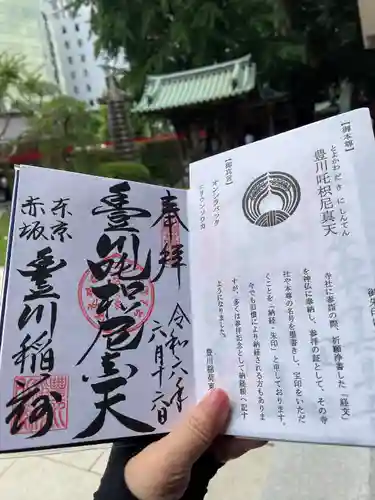 奉拝
令和六年六月十六日
豊川吒枳尼真天
東京
赤坂
豊川稲荷
【御本尊】
豊川吒枳尼真天
とよかわ だ き に しんてん
【御真言】
オン シラバッタ
ニリウン ソワカ
今社に参詣の間、祈願浄書した「経文」
を神仏に奉納し、参拝の証として、その寺
社や本尊の名前を墨書きし、宝印をいただ
くことを「納経・朱印」と申しております。
今でも旧慣により納経される方もありま
すが、多くは参拝記念として納経帳に呼び
ようになりました。